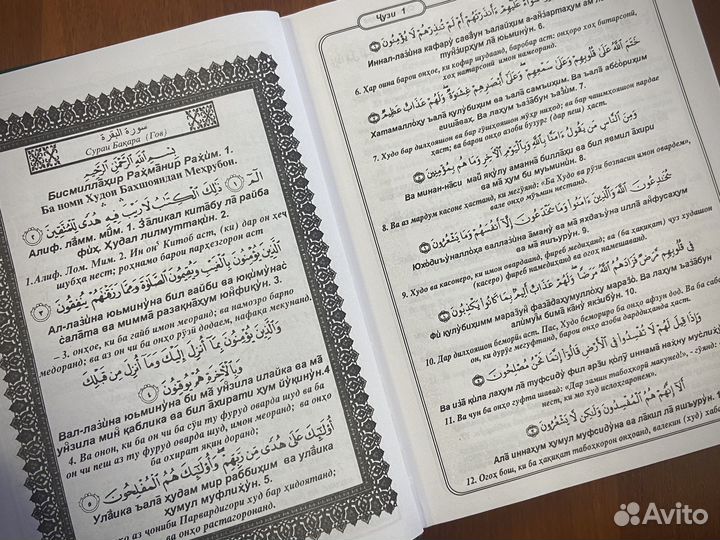 سورة البقرة
Сураи Бақара (Гов)
بِسْمِ اللَّهِ الرَّحْمَٰنِ الرَّحِيمِ
Бисмиллаҳир Раҳмāнир Раҳӣм. 1.
Ба номи Худои Бахшояндаи Меҳрубон.
الٓمٓ ذَٰلِكَ الْكِتَابُ لَا رَيْبَ فِيهِ هُدًى لِّلْمُتَّقِينَ
Алиф. лāмм. мӣм. 1. Зāликал китāбу лā райба
фӣҳ, Ҳудал лилмуттақӣн. 2.
1. Алиф. Лом. Мим. 2. Ин он Китоб аст, (ки) дар он ҳеҷ
шубҳа нест; роҳнамо барои парҳезгорон аст
الَّذِينَ يُؤْمِنُونَ بِالْغَيْبِ وَيُقِيمُونَ الصَّلَاةَ وَمِمَّا رَزَقْنَاهُمْ يُنفِقُونَ
Ал-лазӣна юьминӯна бил ғайби ва юқӣмӯнас
салāта ва миммā разақнāҳум юнфиқӯн. 3.
– 3. онҳое, ки ба ғайб имон меоранд; ва намозро барпо
медоранд; ва аз он чи ба онҳо рӯзӣ додаем, нафақа мекунанд.
وَالَّذِينَ يُؤْمِنُونَ بِمَا أُنزِلَ إِلَيْكَ وَمَا أُنزِلَ مِن قَبْلِكَ
وَبِالْآخِرَةِ هُمْ يُوقِنُونَ
Вал-лазӣна юьминӯна би мā унзила илайка ва мā
унзила мин қаблика ва бил āхирати ҳум йӯқинӯн.4
4. Ва онон, ки ба он чи ба сӯи ту фуруд оварда шуд ва ба
он чи пеш аз ту фуруд оварда шуд, имон меоранд; ва онҳо
ба охират яқин доранд;
أُولَٰئِكَ عَلَىٰ هُدًى مِّن رَّبِّهِمْ وَأُولَٰئِكَ هُمُ الْمُفْلِحُونَ
Улāика ъалā ҳудам мир раббиҳим ва улāика
ҳумул муфлиҳӯн. 5.
аз ҷониби Парвардигори худ бар ҳидоятанд;
ва онҳо растагоронанд.
Ҷузи 1
سَوَاءٌ عَلَيْهِمْ أَأَنذَرْتَهُمْ أَمْ لَمْ تُنذِرْهُمْ لَا يُؤْمِنُونَ
Иннал-лазӣна кафарӯ савāун ъалайҳим а-āнзартаҳум ам лам
тунзирҳум лā юьминӯн. 6.
6. Ҳар оина барои онҳое, ки кофир шуданд, баробар аст: онҳоро хоҳ битарсонӣ,
хоҳ натарсонӣ имон намеоранд.
خَتَمَ اللَّهُ عَلَىٰ قُلُوبِهِمْ وَعَلَىٰ سَمْعِهِمْ وَعَلَىٰ أَبْصَارِهِمْ غِشَاوَةٌ وَلَهُمْ عَذَابٌ عَظِيمٌ
Хатамаллоҳу ъалā қулӯбиҳим ва ъалā самъиҳим. Ва ъалā абсориҳим
ғишāваҳ. Ва лаҳум ъазāбун ъазӣм. 7.
7. Худо бар дилҳояшон ва бар гӯшҳояшон мӯҳр ниҳод; ва бар чашмҳояшон парда
ҳаст; ва барои онҳо азоби бузург (дар пеш) ҳаст.
وَمِنَ النَّاسِ مَن يَقُولُ آمَنَّا بِاللَّهِ وَبِالْيَوْمِ الْآخِرِ وَمَا هُم بِمُؤْمِنِينَ
Ва минан-нāси май яқӯлу āманнā биллāҳи ва бил явмил āхири
ва мā ҳум би муьминӣн. 8.
8. Ва аз мардум касоне ҳастанд, ки мегӯянд: «Ба Худо ва рӯзи бозпасин имон овардем»,
вале онҳо мӯъмин нестанд.
يُخَادِعُونَ اللَّهَ وَالَّذِينَ آمَنُوا وَمَا يَخْدَعُونَ إِلَّا أَنفُسَهُمْ وَمَا يَشْعُرُونَ
Юхōдиъӯналлоҳа валлазӣна āманӯ ва мā яхдаъӯна илла āнфусаҳум
ва мā яшъурӯн. 9.
9. Худо ва касонеро, ки имон овардаанд, фиреб медиҳанд; ва (ба ҳақиқат) ҷуз худашон
(касеро) фиреб намедиҳанд ва огоҳ намешаванд.
فِي قُلُوبِهِم مَّرَضٌ فَزَادَهُمُ اللَّهُ مَرَضًا وَلَهُمْ عَذَابٌ أَلِيمٌ بِمَا كَانُوا يَكْذِبُونَ
Фӣ қулӯбиҳимм марāзун фазāдаҳумуллоҳу маразо. Ва лаҳум ъазāбун
алӣмум бимā кāнӯ якзибӯн. 10.
10. Дар дилҳояшон беморӣ аст. Пас, Худо бемориро ба онҳо афзун дод. Ва ба сабаби
он, ки дурӯғ мегуфтанд, барои онҳо азоби дарддиҳанда ҳаст.
وَإِذَا قِيلَ لَهُمْ لَا تُفْسِدُوا فِي الْأَرْضِ قَالُوا إِنَّمَا نَحْنُ مُصْلِحُونَ
Ва изā қӣла лаҳум лā туфсидӯ фил арзи қōлӯ иннамā наҳну муслиҳӯн
11. Ва чун ба онҳо гуфта шавад: «Дар замин табоҳкорӣ макунед!», - гӯянд: «
нест, ки мо худ ислоҳгаронем».
أَلَا إِنَّهُمْ هُمُ الْمُفْسِدُونَ وَلَٰكِن لَّا يَشْعُرُونَ
Алā иннаҳум ҳумул муфсидӯна ва лāкил лā яшъурӯн.
12. Огоҳ бош, ки ба ҳақиқат табоҳкорон онҳоанд, валекин (худ)
Avito